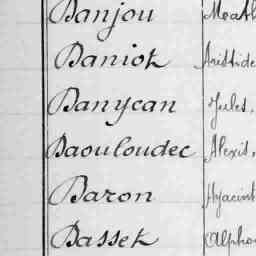 Banjou
Baniok Aristide
Banycan Jules,
Baouloudec Alexis,
Baron Hyacint
Basset Alpho